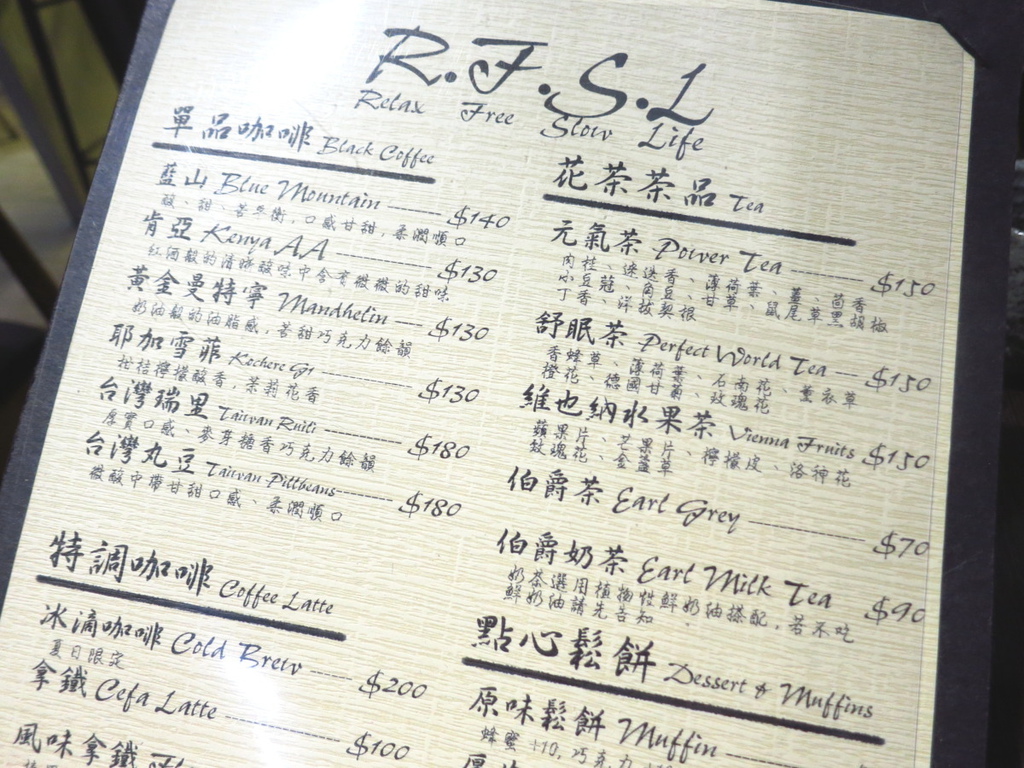 R.F.S.L
Relax Free Slow Life
單品咖啡 Black Coffee
藍山 Blue Mountain $140
酸、甜、苦平衡,口感甘甜,柔潤順口
肯亞 Kenya AA $130
紅酒般的清晰酸味中含有微微的甜味
黃金曼特寧 Mandhelin $130
奶油般的油脂感,苦甜巧克力餘韻
耶加雪菲 Kochere G1 $130
桔檸檬酸香,茉莉花香
台灣瑞里 Taiwan Ruili $180
厚實口感、麥芽糖香巧克力餘韻
台灣丸豆 Taiwan Pillbeans $180
微酸中帶甘甜口感、柔潤順口
特調咖啡 Coffee Latte
冰滴咖啡 Cold Brew $200
夏日限定
拿鐵 Cefa Latte $100
風味拿鐵
花茶茶品 Tea
元氣茶 Power Tea $150
肉桂、迷迭香、薄荷葉、薑、茴香
小豆蔻、角豆、甘草、鼠尾草、黑胡椒
丁香、洋菝契根
舒眠茶 Perfect World Tea $150
香蜂草、薄荷葉、石南花、薰衣草
橙花、德國甘菊、玫瑰花
維也納水果茶 Vienna Fruits $150
蘋果片、芒果片、檸檬皮、洛神花
玫瑰花、金盞草
伯爵茶 Earl Grey $70
伯爵奶茶 Earl Milk Tea $90
奶茶選用植物性鮮奶油搭配,若不吃
鮮奶油請先告知
點心鬆餅 Dessert & Muffins
原味鬆餅 Muffin
蜂蜜 +10, 巧克力